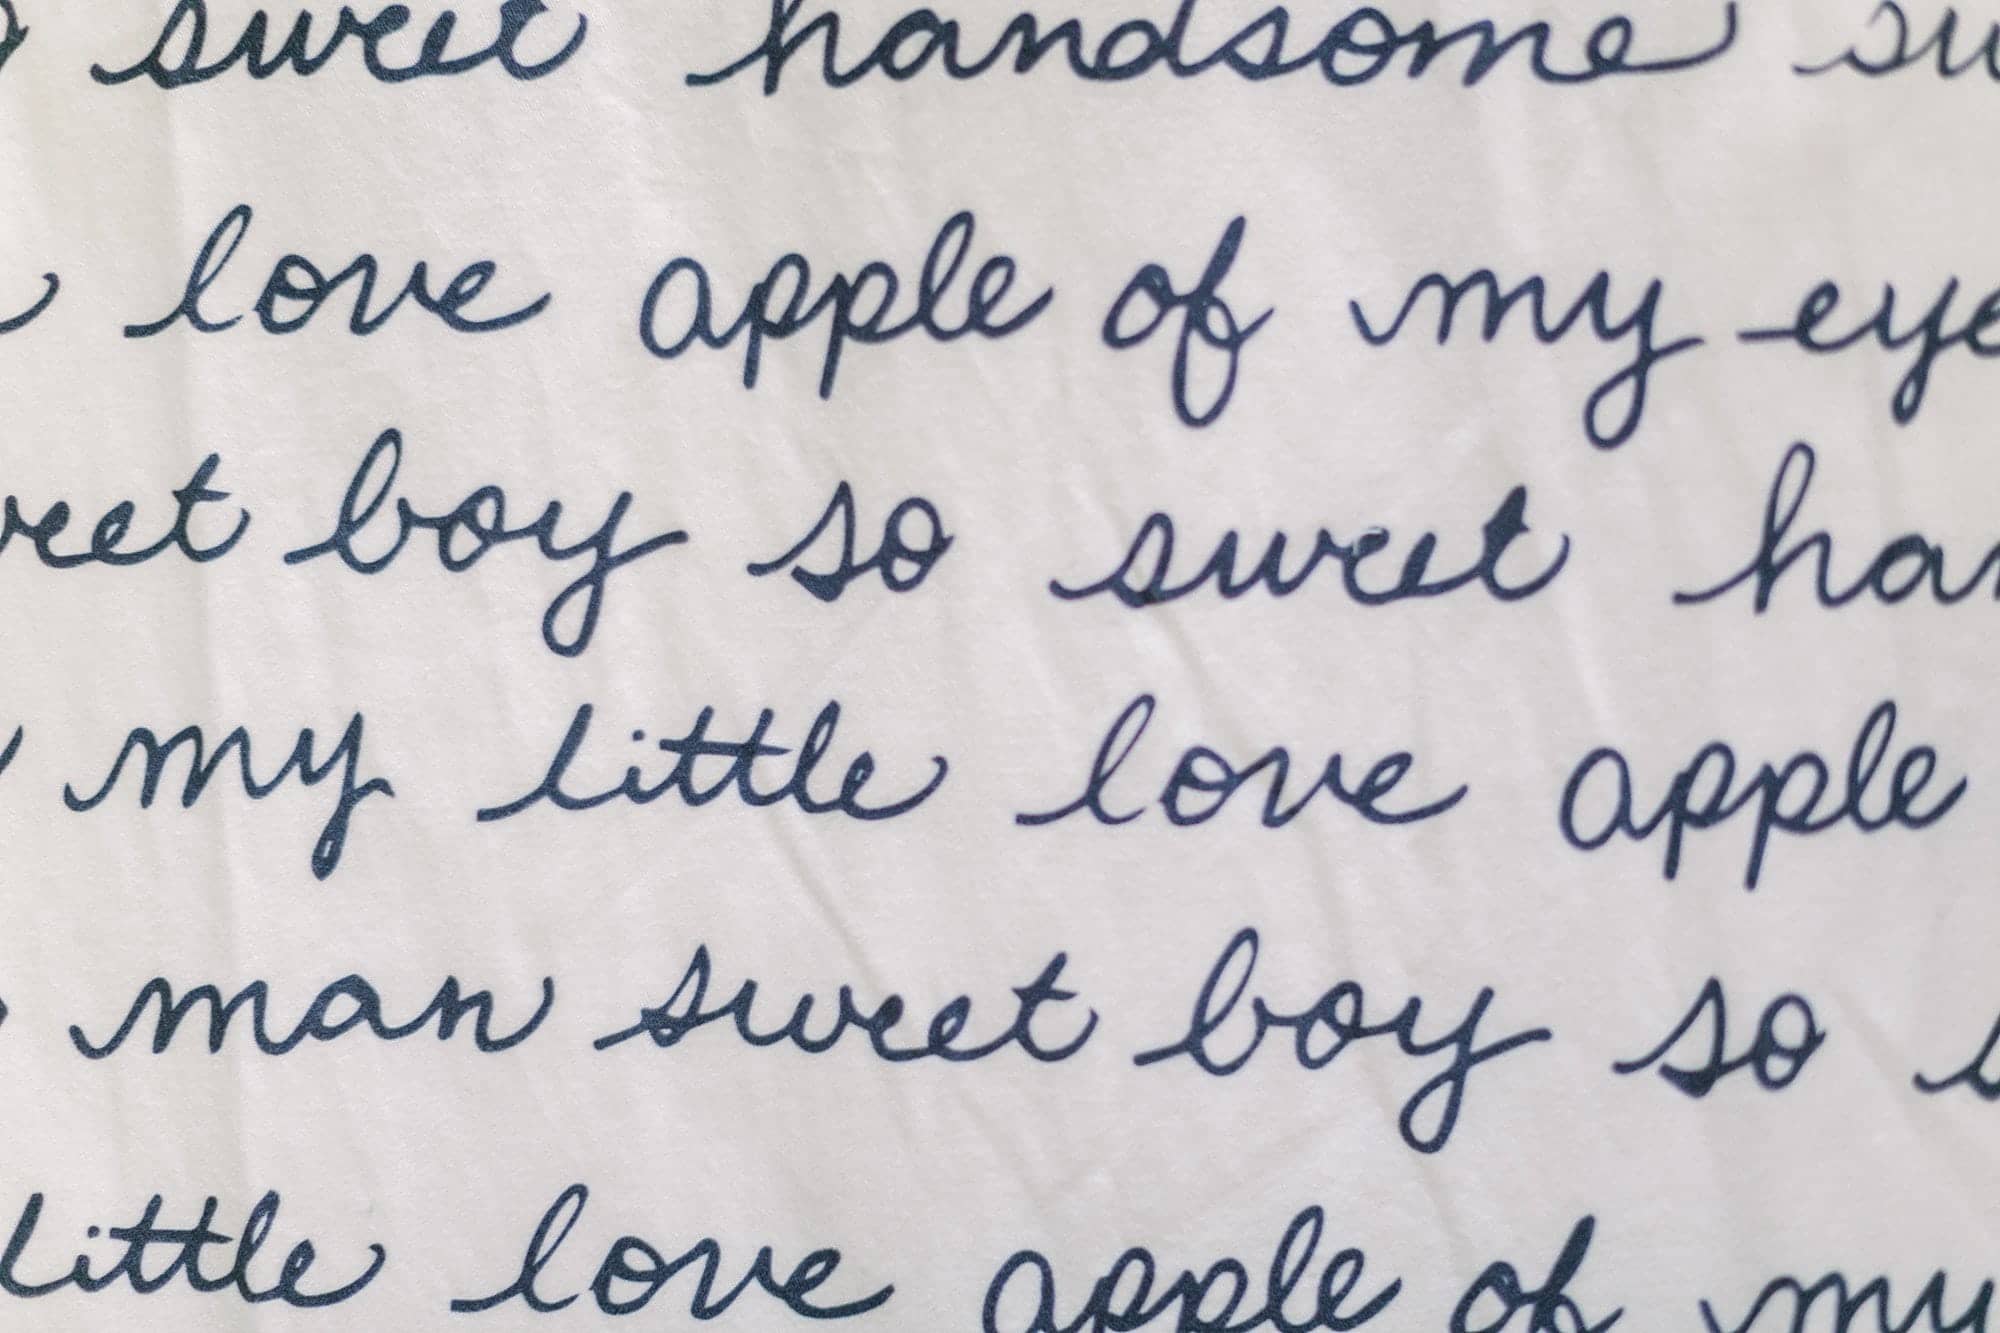 sweet handsome
love apple of my eye
sweet boy so sweet
my little love apple
man sweet boy so
little love apple of my